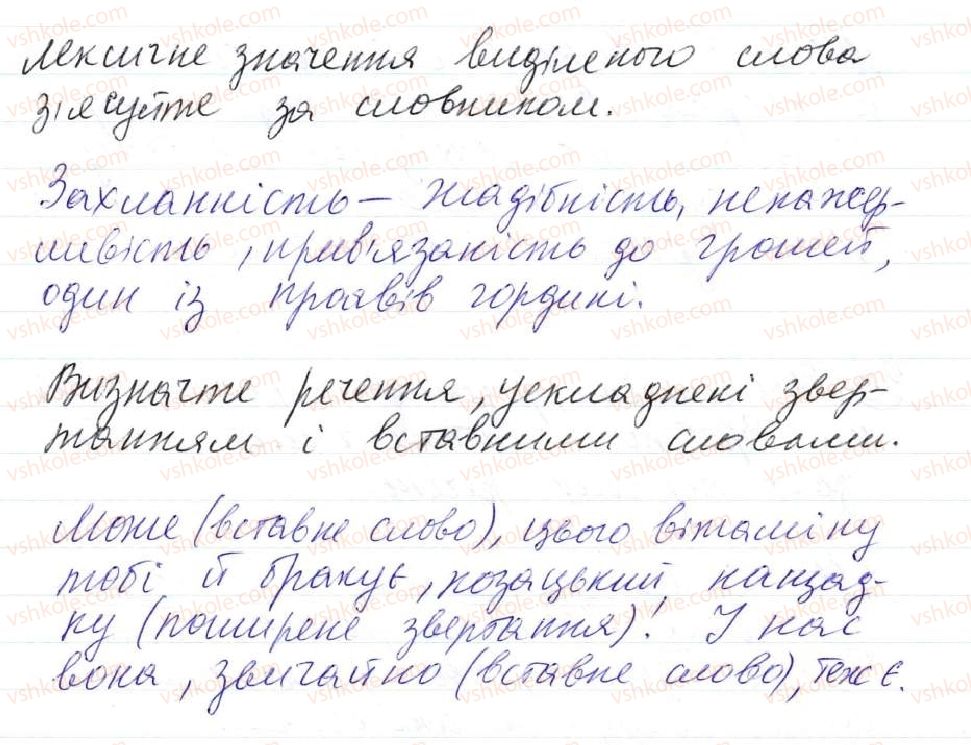 Лексичне значення виділеного слова
з'ясуйте за словником.
Захланність – жадібність, ненажер-
ливість, прив'язаність до грошей,
один із проявів гордині.
Визначте речення, ускладнені звер-
танням і вставними словами.
Може (вставне слово), цього вітаміну
тобі й бракує, козацький нащад-
ку (поширене звертання)! У нас
вона, звичайно (вставне слово), теж є.